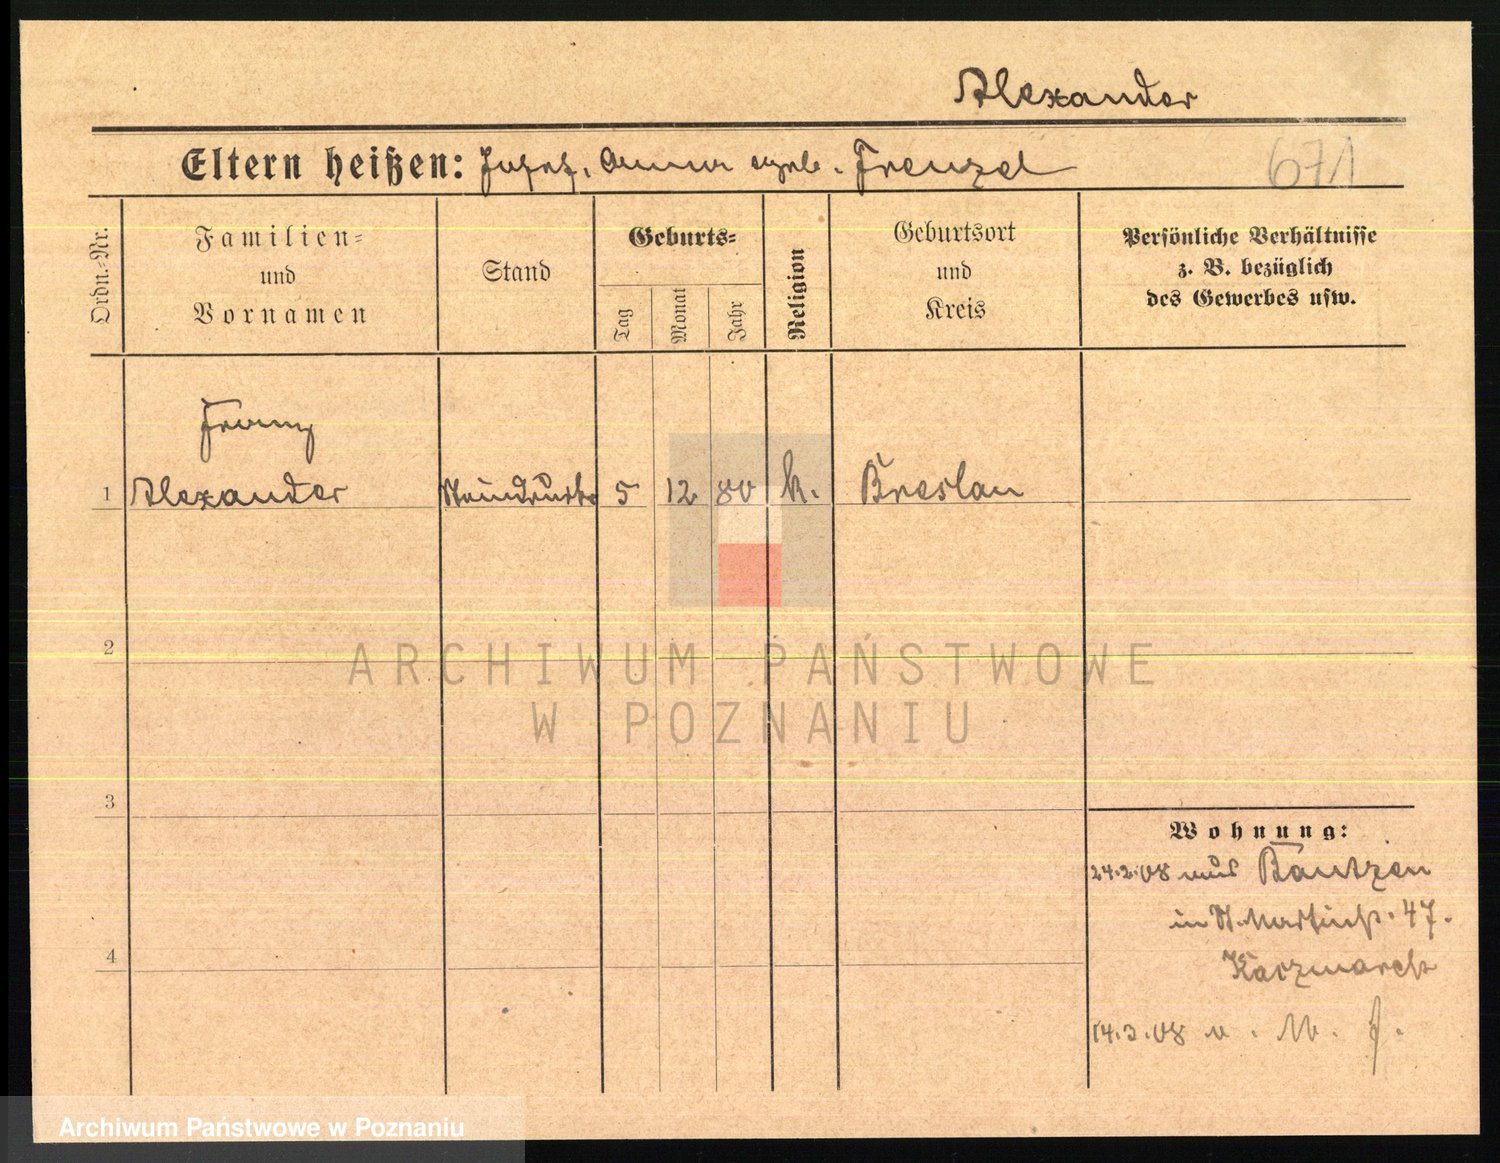 Alexander
Eltern heißen: Josef, Anna geb. Frenzel
671
Ordn.-Nr.
Familien-
und
Vornamen
Stand
Geburts-
Tag
Monat
Jahr
Religion
Geburtsort
und
Kreis
Persönliche Verhältnisse
z. B. bezüglich
des Gewerbes usw.
Franz
1 Alexander Steindrucker 5 12 80 k. Breslau
2
ARCHIWUM PAŃSTWOWE
W POZNANIU
3
Wohnung:
24.2.08 aus Bautzen
in St. Martinstr. 47.
Kaczmarek
4
14.3.08 v.
Archiwum Państwowe w Poznaniu